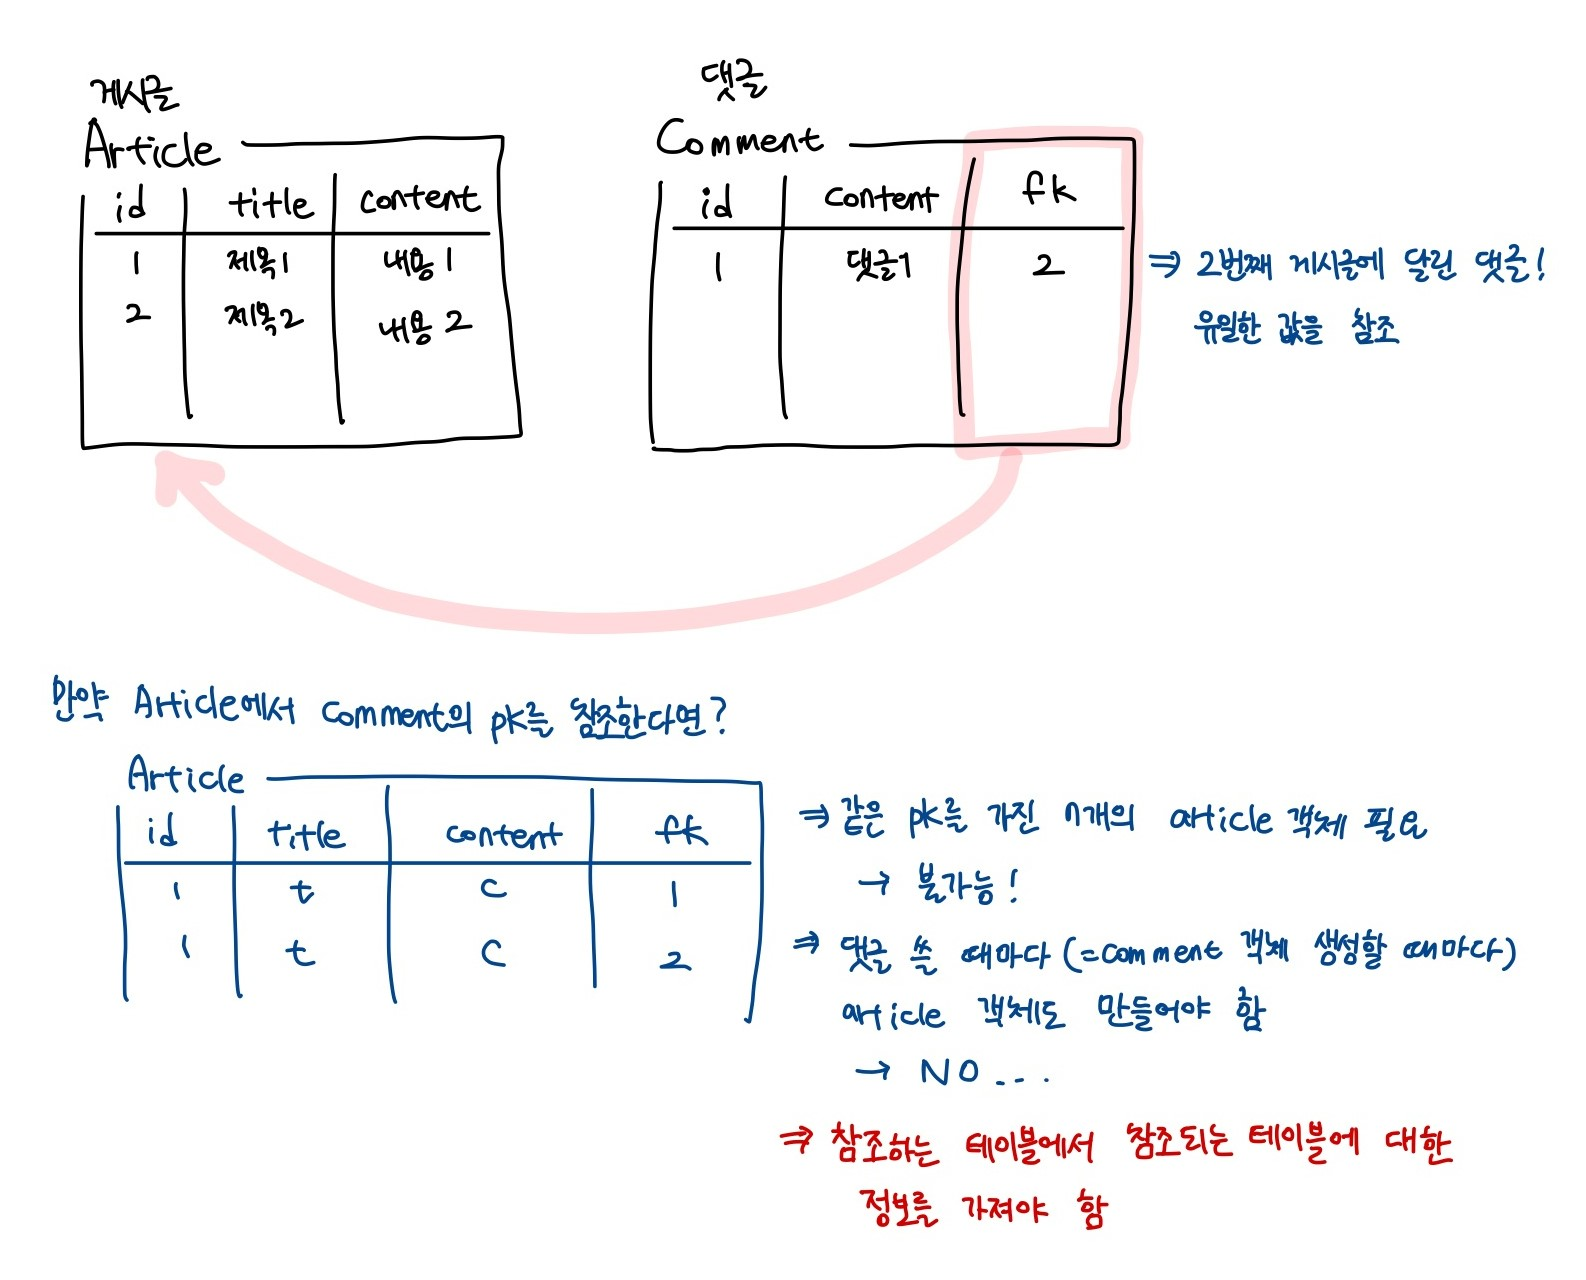 게시글
Article
id title content
1 제목1 내용1
2 제목2 내용2
댓글
Comment
id content fk
1 댓글1 2
⇒ 2번째 게시글에 달린 댓글!
유일한 값을 참조
만약 Article에서 comment의 pk를 참조한다면?
Article
id title content fk
1 t c 1
1 t c 2
⇒ 같은 pk를 가진 n개의 article 객체 필요
→ 불가능!
⇒ 댓글 쓸 때마다 (=comment 객체 생성할 때마다)
article 객체도 만들어야 함
→ NO...
⇒ 참조하는 테이블에서 참조되는 테이블에 대한
정보를 가져야 함